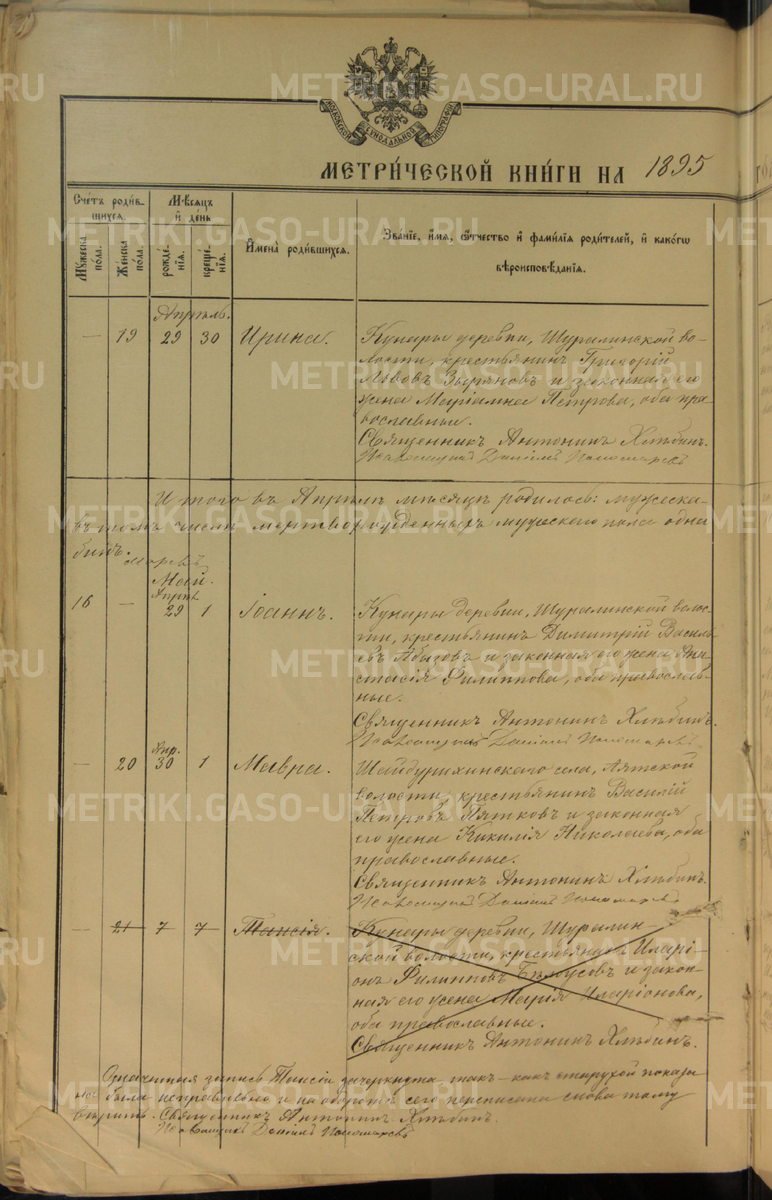 METRIKI.GASO-URAL.RU
МОСКОВСКОЙ СѴНОДАЛЬНОЙ ТИПОГРАФІИ
МЕТРИ́ЧЕСКОЙ КНИ́ГИ НА 1895
Счétъ роди́вшихся.
Мꙋ́жеска по́ла.
Же́нска по́ла.
Мѣ́сяцъ и҆ де́нь
рожде́нїѧ.
креще́нїѧ.
И҆мена̀ роди́вшихся.
Зва́нїе, и҆́мѧ, ѻ҆́тчество и҆ фами́лїѧ роди́телей, и҆ како́гѡ
вѣроисповѣ́данїѧ.
Апрѣль.
— 19 29 30 Ирина.
Кунары деревни, Шуралинской во-
лости, крестьянинъ Григорій
Львовъ Зыряновъ и законная его
жена Маріамна Петрова, оба пра-
вославные.
Священникъ Антонинъ Хлѣбинъ.
Псаломщикъ Даніилъ Пономаревъ
Итого въ Апрѣлѣ мѣсяцѣ родилось: мужеска-
въ томъ числѣ мертворожденныхъ мужескаго пола одинъ
Май.
16 — Апрѣл 29 1 Іоаннъ.
Кунары деревни, Шуралинской волос-
ти, крестьянинъ Димитрій Василь-
евъ Абызовъ и законная его жена Ана-
стасія Филиппова, оба православ-
ные.
Священникъ Антонинъ Хлѣбинъ.
Псаломщикъ Даніилъ Пономаревъ
— 20 Апр. 30 1 Мавра.
Шайдурихинскаго села, Аятской
волости, крестьянинъ Василій
Петровъ Пятковъ и законная
его жена Кикилія Николаева, оба
православные.
Священникъ Антонинъ Хлѣбинъ.
Псаломщикъ Даніилъ Пономаревъ
— 21 7 7 Таисія.
Кунары деревни, Шуралин-
ской волости, крестьянинъ Иларі-
онъ Филипповъ Бѣлоусовъ и закон-
ная его жена Марія Иларіонова,
оба православные.
Священникъ Антонинъ Хлѣбинъ.
Означенная запись Таисіи зачеркнута такъ-какъ старухой показа
была неправильно и на оборотѣ сего переписана снова
Священникъ Антонинъ Хлѣбинъ.
Псаломщикъ Даніилъ Пономаревъ